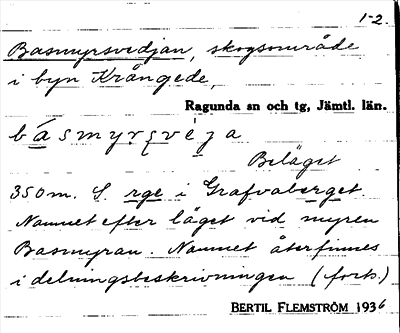 1-2.
Basmyrsvedjan, skogsområde
i byn Krångede,
Ragunda sn och tg, Jämtl. län.
Beläget
350m. S. rge i Grafvaberget.
Namnet efter läget vid myren
Basmyran. Namnet återfinnes
i delningsbeskrivningen (forts.)
BERTIL FLEMSTRÖM 1936